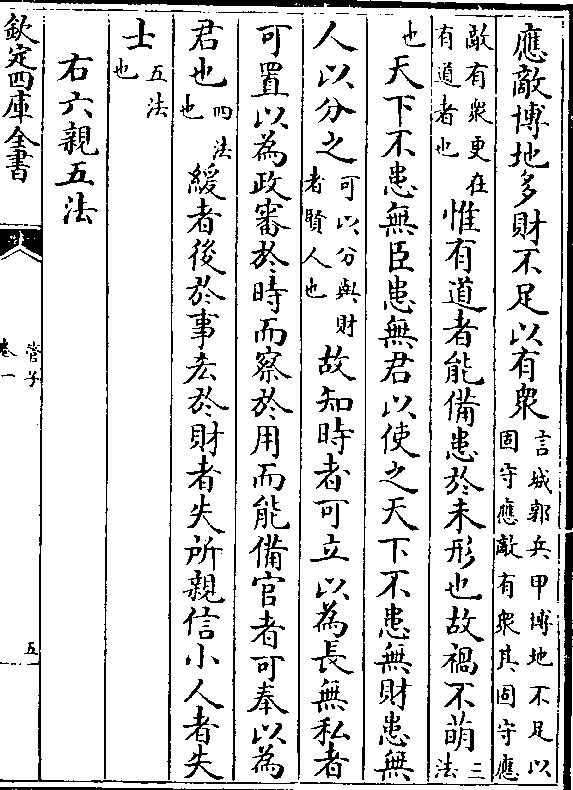 應敵博地多財不足以有衆言城郭兵甲博地不足以固守應敵有衆其固守應
敵有衆更在有道者也惟有道者能備患於未形也故禍不萌三法
也天下不患無臣患無君以使之天下不患無財患無
人以分之可以分與財者賢人也故知時者可立以為長無私者
可置以為政審於時而察於用而能備官者可奉以為
君也四法也緩者後於事吝於財者失所親信小人者失
士五法也
右六親五法
欽定四庫全書
管子
卷一
五